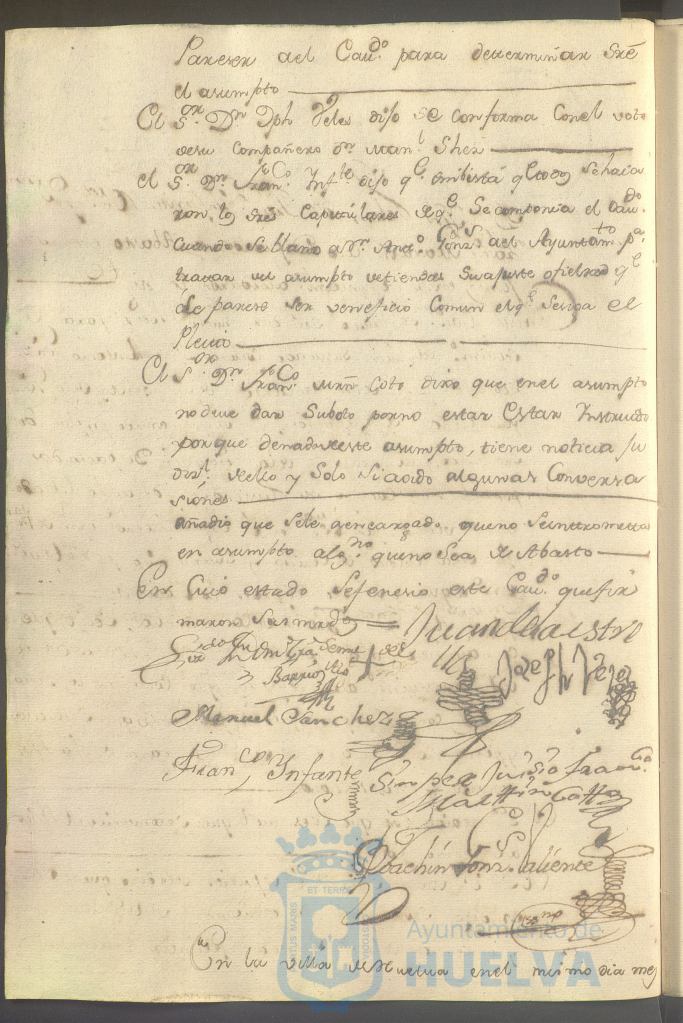 Pareser del Cavdo. para determinar sre
el asumpto
El Sor. Dn. Jph Velez dijo se conforma Conel voto
desu Compañero Dn. Manl. Shez
el Sor. Dn. Franco. Ynfte. dijo qe.
ron los sres Capitulares qe. Se componia el Cavdo.
Cuando se llamo a Dn. Anto. Gonzs. del Ayuntamto. pa.
tratar del asumpto
le parese ser veneficio Comun el qe. Sesiga el
Pleito
El Sor. Dn. Franco. Mrn Coto dixo que enel asumpto
no deve dar Suboto porno estar Estar Ynstruido
porque denada deeste asumpto, tiene noticia Ju
dizl. dello y Solo Si aoido algunas Conversa
siones
añadio que Sele a encargado queno Seintrometta
en asumpto algno. queno Sea de Abasto
En Cuio estado Sefenesio este Cavdo. quefir
maron Sus mrds
Juan de Castro
Barrios
Joseph Velez
Manuel Sanchez
Franco. Ynfante
Sin perjuisio Franco.
Martin Cotto
Joachin Gonz. Valiente
En la villa de Huelva enel mismo dia mes
Ayuntamiento de
HUELVA